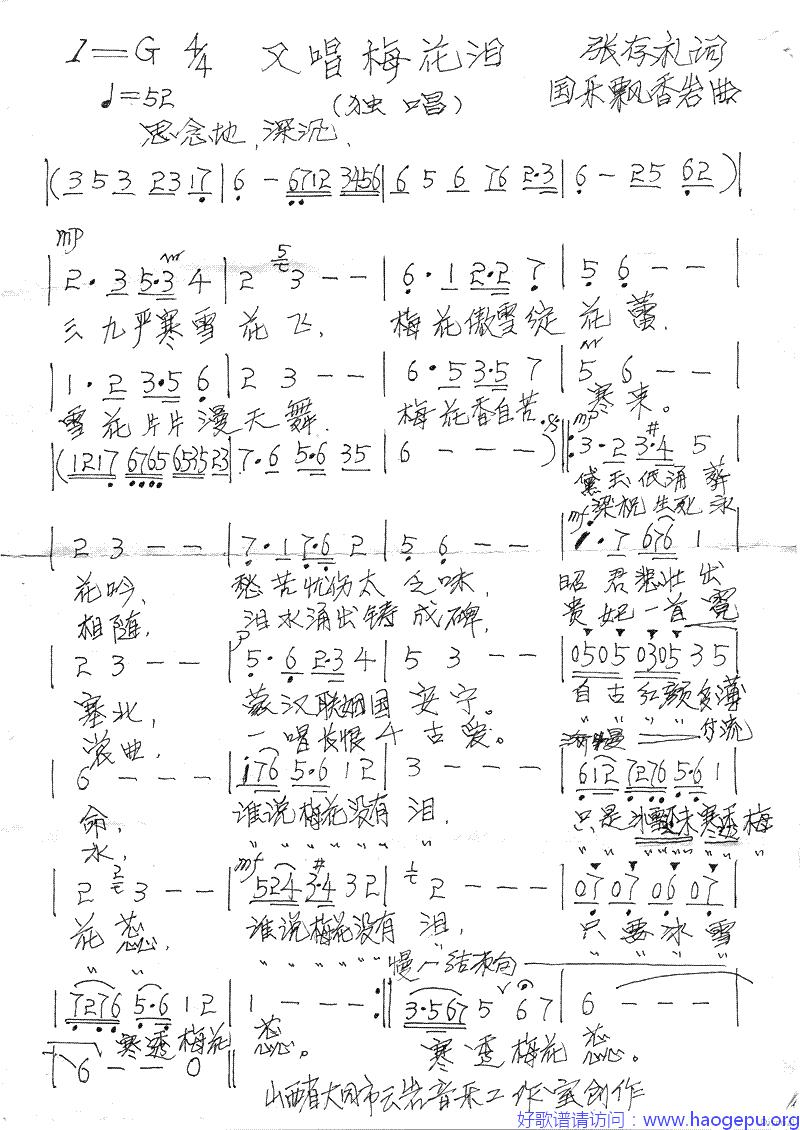 1=G 4/4 又唱梅花泪 张存礼词
♩=52 (独唱) 国乐飘香岩曲
思念地,深沉,
|(3 5 3 23 17|6 - 6712 3456|6 5 6 76 2·3|6 - 25 62)|
mp
2·3 5·3 4|2 3 - -|6·1 2·2 7|5 6 - -|
三九严寒雪花飞, 梅花傲雪绽花蕾,
|1·2 3·5 6|2 3 - -|6·5 3·5 7|5 6 - -|
雪花片片漫天舞, 梅花香自苦寒来。
|(1217 6765 6535 23|7·6 5·6 35|6 - - -)‖: mp 3·2 3·#4 5|
黛玉低涌葬
梁祝生死永
mf
|2 3 - -|7·1 7·6 2|5 6 - -|1·7 676 1|
花吟, 愁苦忧伤太乏味, 昭君悲壮出
相随, 泪水涌出铸成碑, 贵妃一首霓
p
|2 3 - -|5·6 2·3 4|5 3 - -|0505 0305 3 5|
塞北, 蒙汉联姻国安宁。 自古红颜多薄
裳曲, 一唱长恨千古爱。 〃 〃 〃 〃 付流
|6 - - -|176 5·6 12|3 - - -|612 7276 5·6 1|
命, 谁说梅花没有泪, 只是
水, 〃 〃 〃 〃 〃 〃
mf
|2 3 - -|524 3·#4 32|2 - - -|07 07 06 07|
花蕊, 谁说梅花没有泪, 只要冰雪
〃 〃 〃 〃 〃 〃 〃 〃 〃
慢一结束句
|7276 5·6 12|1 - - - :‖3·567 5 6 7|6 - - -|
寒透梅花蕊。 寒透梅花蕊。
6 - - 0‖
山西省大同市云岩音乐工作室创作
好歌谱请访问：www.haogepu.org